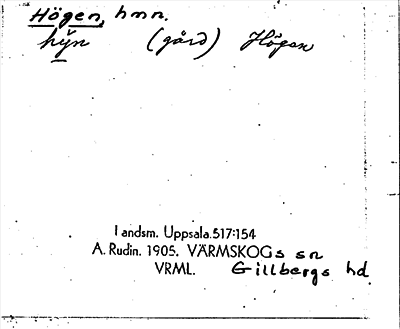 Högen, hmn.
hÿn (gård) Högen
Landsm. Uppsala.517:154
A. Rudin. 1905. VÄRMSKOGs sn
VRML. Gillbergs hd